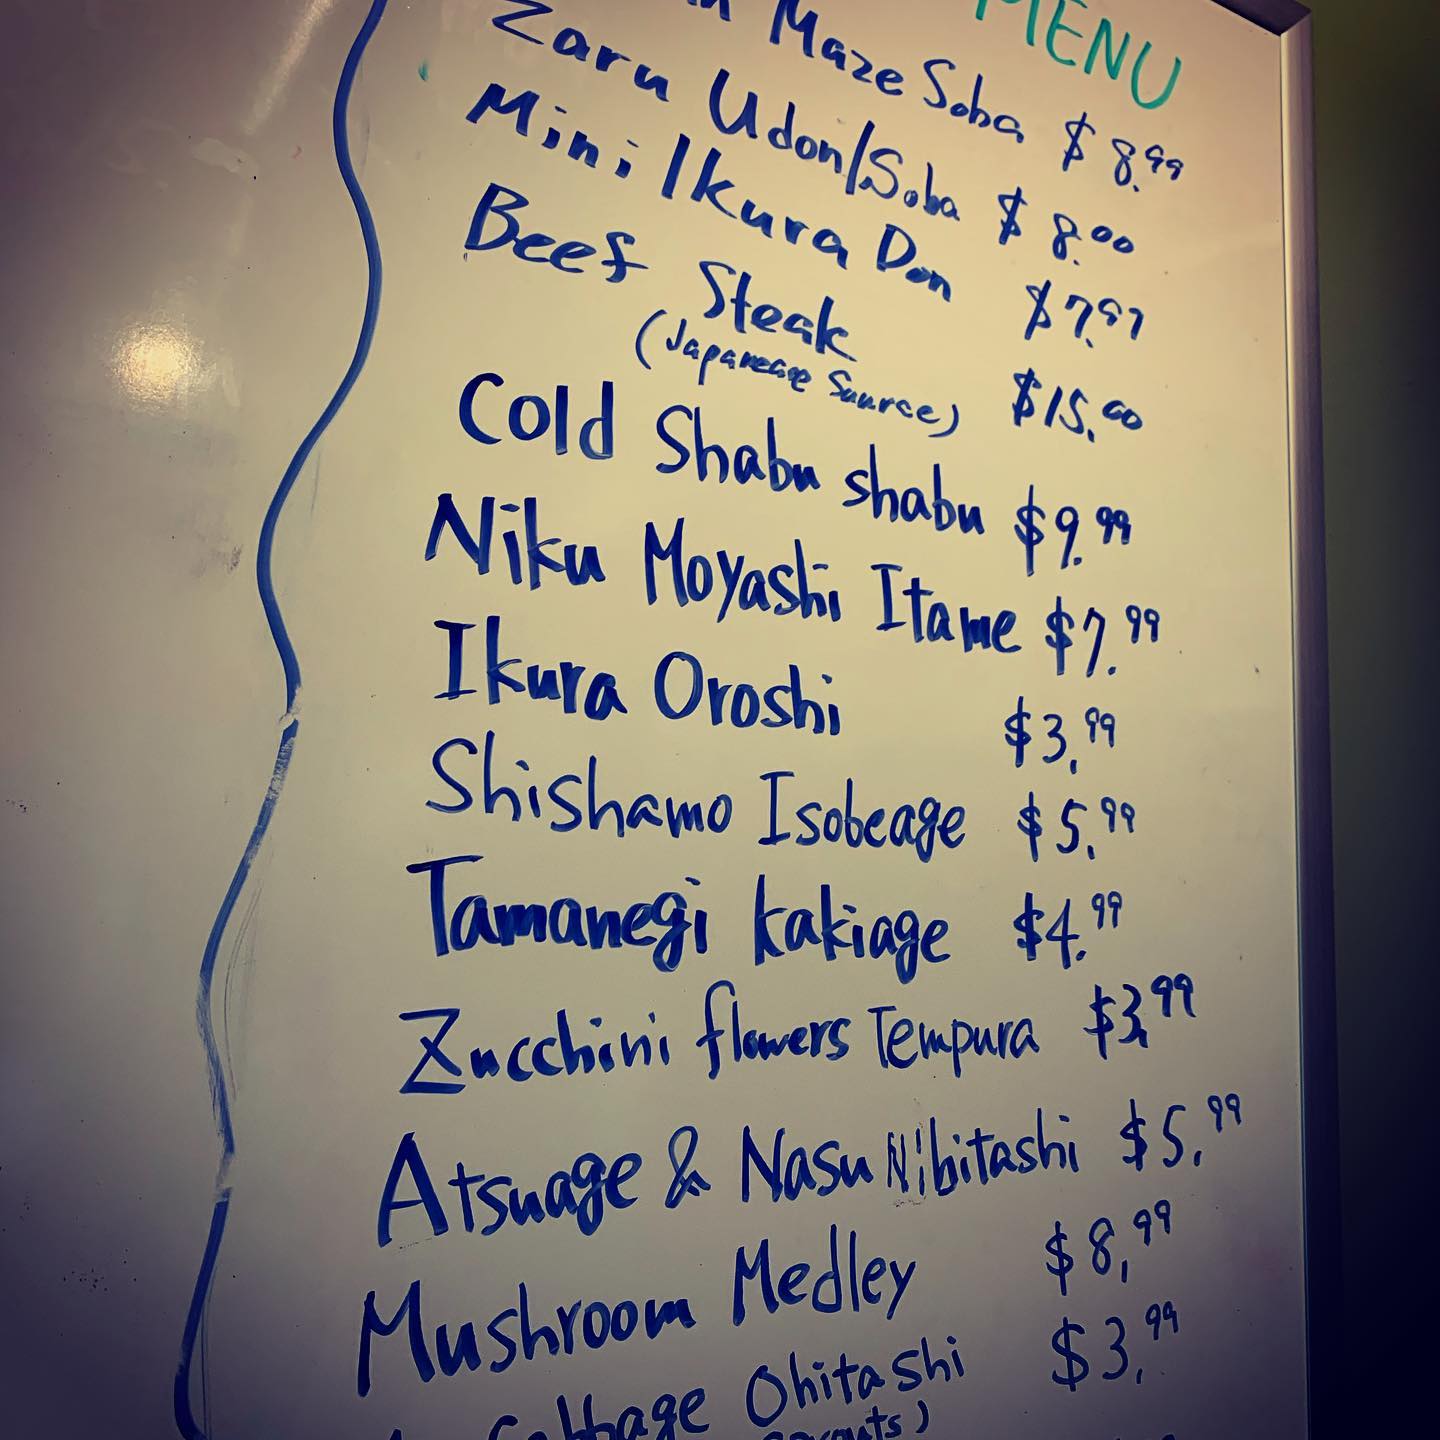 MENU
Maze Soba $8.99
Zaru Udon/Soba $8.00
Mini Ikura Don $7.97
Beef Steak $15.00
(Japanease Saurce)
Cold Shabu shabu $9.99
Niku Moyashi Itame $7.99
Ikura Oroshi $3.99
Shishamo Isobeage $5.99
Tamanegi kakiage $4.99
Zucchini flowers Tempura $3.99
Atsuage & Nasu Nibitashi $5.99
Mushroom Medley $8.99
Cabbage Ohitashi $3.99